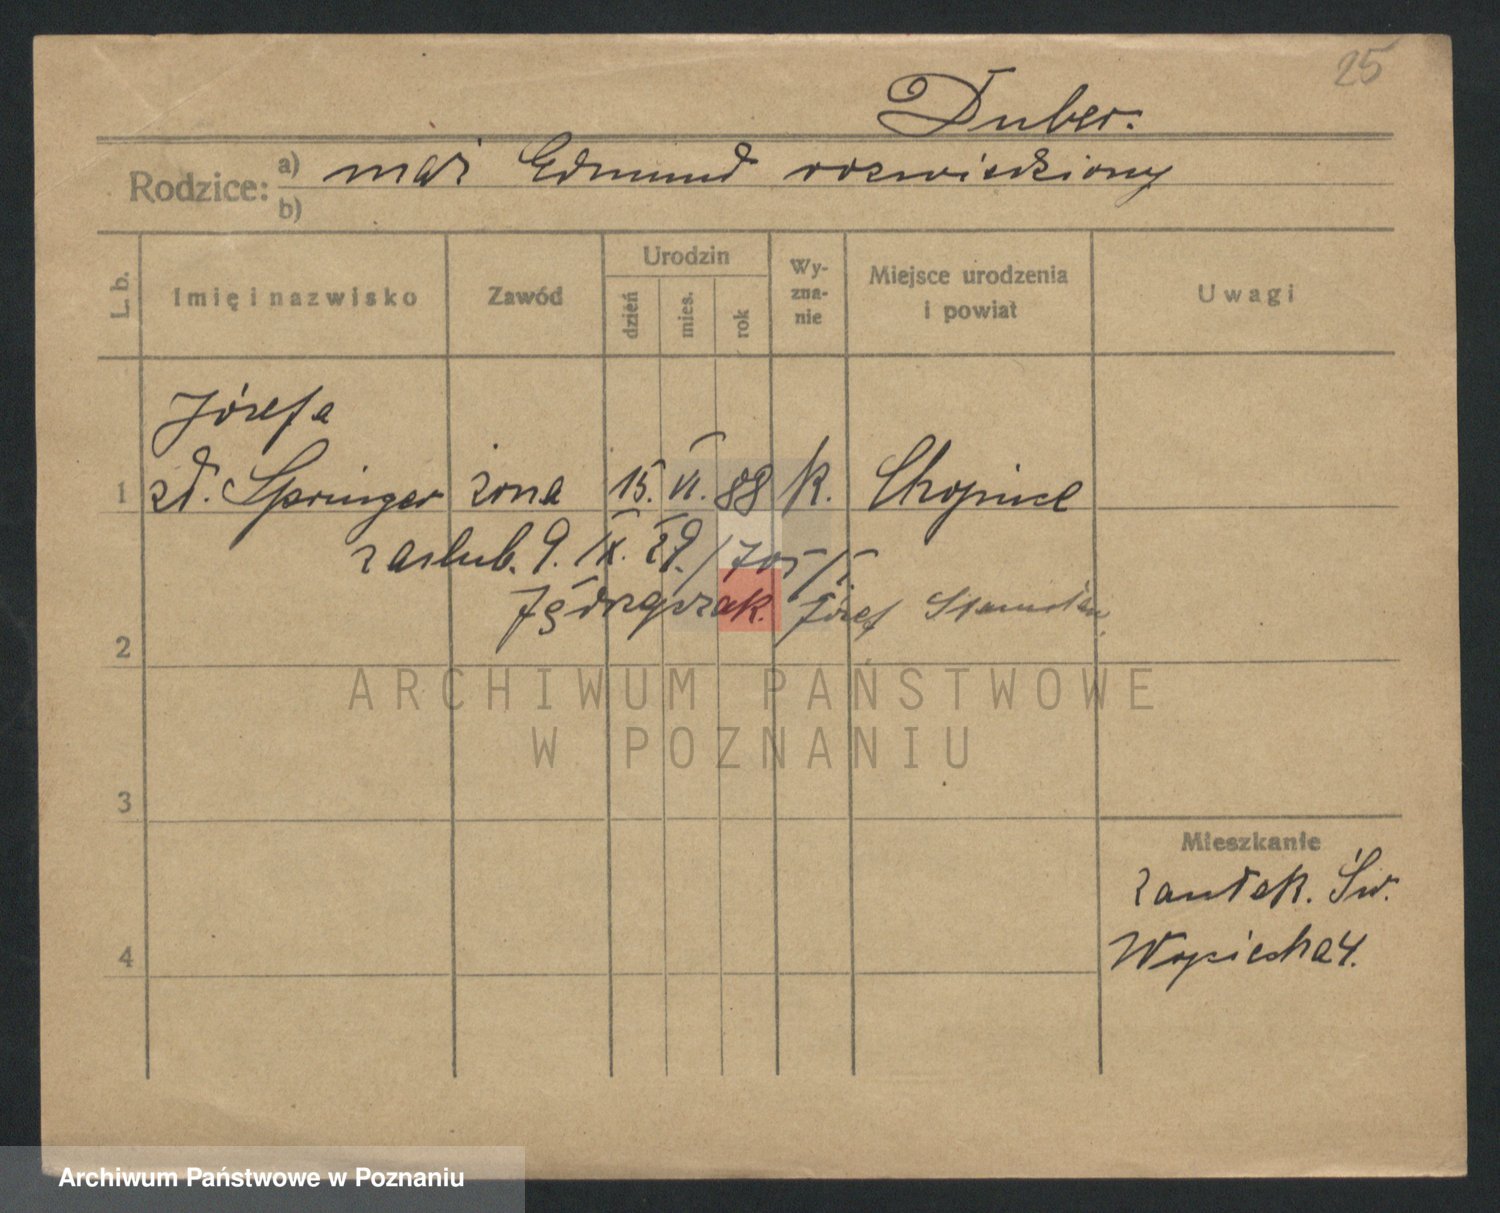 25
Duber.
Rodzice: a) mąż Edmund rozwiedziony
b)
L. b. Imię i nazwisko Zawód Urodzin dzień mies. rok Wy-zna-nie Miejsce urodzenia i powiat Uwagi
Józefa
1 zd. Springer żona 15. VI. 88 k. Chojnice
zaślub. 9. IX. 29. /705/I
Jędrzejczak. Józef Stanisław
2
ARCHIWUM PAŃSTWOWE
W POZNANIU
3
Mieszkanie
zaułek. Św.
4 Wojciecha 4.
Archiwum Państwowe w Poznaniu